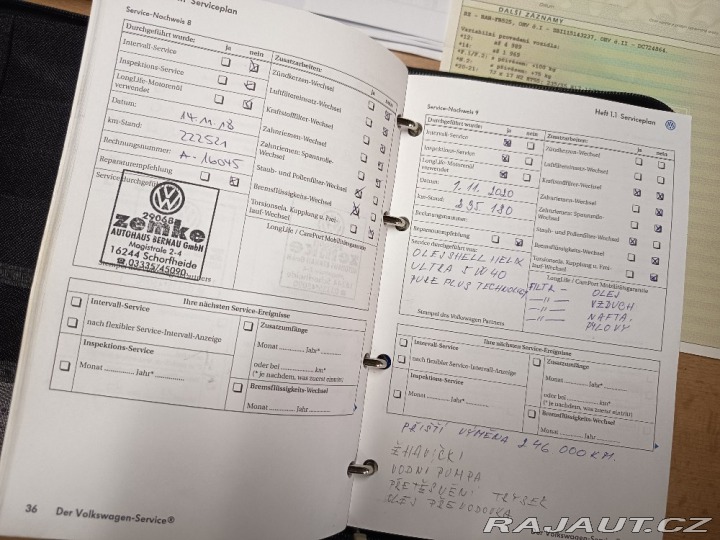 Serviceplan
Service-Nachweis 8
Durchgeführt wurde:
ja
nein
Zusatzarbeiten:
ja
nein
Intervall-Service
Zündkerzen-Wechsel
Inspektions-Service
Luftfiltereinsatz-Wechsel
LongLife-Motorenöl
verwendet
Kraftstofffilter-Wechsel
Datum:
14.11.18
Zahnriemen-Wechsel
km-Stand:
222521
Zahnriemen: Spannrolle-
Wechsel
Rechnungsnummer:
A-16045
Staub- und Pollenfilter-Wechsel
Reparaturempfehlung
Bremsflüssigkeits-Wechsel
Service durchgeführt
Torsionsela. Kupplung u. Frei-
lauf-Wechsel
LongLife / CarePort Mobilitätsgarantie
29068
zemke
AUTOHAUS BERNAU GmbH
Magistrale 2-4
16244 Schorfheide
☎ 03335/45090
Ihre nächsten Service-Ereignisse
Intervall-Service
nach flexibler Service-Intervall-Anzeige
Inspektions-Service
Monat ............ Jahr* ............
Zusatzumfänge
Monat ............ Jahr* ............
oder bei ............ km*
(* je nachdem, was zuerst eintritt)
Bremsflüssigkeits-Wechsel
Monat ............ Jahr ............
36
Der Volkswagen-Service®
Service-Nachweis 9
Heft 1.1 Serviceplan
Durchgeführt wurde:
ja
nein
Zusatzarbeiten:
ja
nein
Intervall-Service
Zündkerzen-Wechsel
Inspektions-Service
Luftfiltereinsatz-Wechsel
LongLife-Motorenöl
verwendet
Kraftstofffilter-Wechsel
Datum:
1.11.2020
Zahnriemen-Wechsel
km-Stand:
235 180
Zahnriemen: Spannrolle-
Wechsel
Rechnungsnummer:
Staub- und Pollenfilter-Wechsel
Reparaturempfehlung
Bremsflüssigkeits-Wechsel
Service durchgeführt von:
Torsionsela. Kupplung u. Frei-
lauf-Wechsel
LongLife / CarePort Mobilitätsgarantie
OLEJ SHELL HELIX
ULTRA 5W40
PURE PLUS TECHNOLOGY
FILTR - OLEJ
-"- VZDUCH
-"- NAFTA
-"- PILOVÝ
Stempel des Volkswagen Partners
Ihre nächsten Service-Ereignisse
Intervall-Service
nach flexibler Service-Intervall-Anzeige
Inspektions-Service
Monat ............ Jahr* ............
Zusatzumfänge
Monat ............ Jahr* ............
oder bei ............ km*
(* je nachdem, was zuerst eintritt)
Bremsflüssigkeits-Wechsel
Monat ............ Jahr ............
PŘÍŠTÍ VÝMĚNA 246 000 KM.
ŽHAVIČKI
VODNÍ PUMPA
PŘETĚSNĚNÍ TRYSEK
OLEJ PŘEVODOVKA
Der Volkswagen-Service
DALŠÍ ZÁZNAMY
RAJAUT.CZ